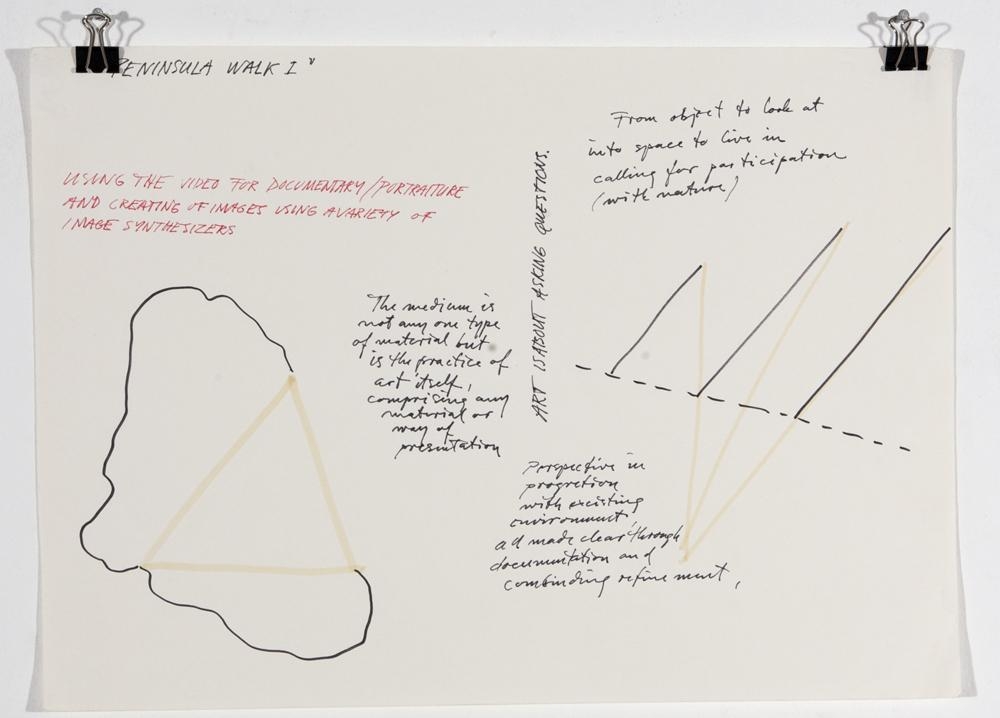 "PENINSULA WALK I"
USING THE VIDEO FOR DOCUMENTARY/PORTRAITURE
AND CREATING OF IMAGES USING A VARIETY OF
IMAGE SYNTHESIZERS
The medium is
not any one type
of material but
is the practice of
art itself,
comprising any
material or
way of
presentation
ART IS ABOUT ASKING QUESTIONS.
From object to look at
into space to live in
calling for participation
(with nature)
Perspective in
progretion
with existing
environment,
all made clear through
documentation and
combinding refinement,